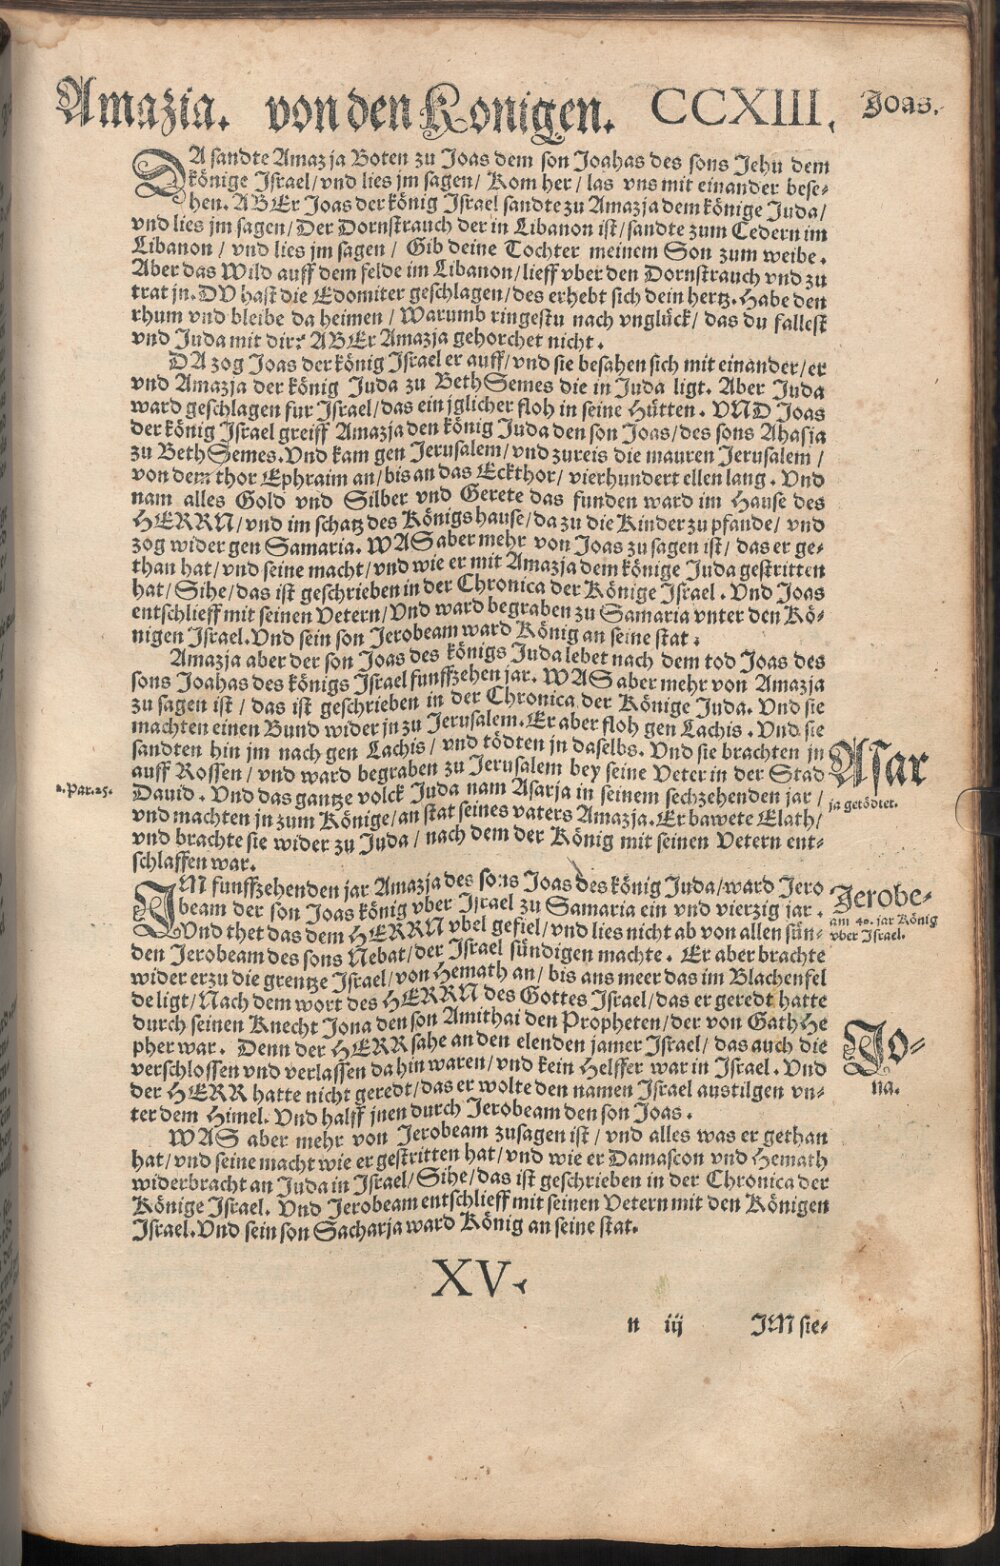 Amazia. von den Konigen. CCXIII. Joas.
DA sandte Amazja Boten zu Joas dem son Joahas des sons Jehu dem
könige Israel/vnd lies jm sagen/ Kom her/ las vns mit einander bese-
hen. ABEr Joas der könig Israel sandte zu Amazja dem könige Juda/
vnd lies jm sagen/ Der Dornstrauch der in Libanon ist/sandte zum Cedern im
Libanon/ vnd lies jm sagen/ Gib deine Tochter meinem Son zum weibe.
Aber das Wild auff dem felde im Libanon/lieff vber den Dornstrauch vnd zu
trat jn. DV hast die Edomiter geschlagen/des erhebt sich dein hertz. Habe den
rhum vnd bleibe da heimen/ Warumb ringestu nach vnglück/ das du fallest
vnd Juda mit dir? ABEr Amazja gehorchet nicht.
DA zog Joas der könig Israel er auff/vnd sie besahen sich mit einander/er
vnd Amazja der könig Juda zu BethSemes die in Juda ligt. Aber Juda
ward geschlagen fur Israel/das ein jglicher floh in seine Hütten. VND Joas
der könig Israel greiff Amazja den könig Juda den son Joas/des sons Ahasja
zu BethSemes. Vnd kam gen Jerusalem/vnd zureis die mauren Jerusalem/
von dem thor Ephraim an/bis an das Eckthor/ vierhundert ellen lang. Vnd
nam alles Gold vnd Silber vnd Gerete das funden ward im Hause des
HERRN/vnd im schatz des Königs hause/da zu die Kinder zu pfande/ vnd
zog wider gen Samaria. WAS aber mehr von Joas zu sagen ist/ das er ge-
than hat/vnd seine macht/vnd wie er mit Amazja dem könige Juda gestritten
hat/ Sihe/das ist geschrieben in der Chronica der Könige Israel. Vnd Joas
entschlieff mit seinen Vetern/Vnd ward begraben zu Samaria vnter den Kö-
nigen Israel. Vnd sein son Jerobeam ward König an seine stat.
Amazja aber der son Joas des königs Juda lebet nach dem tod Joas des
sons Joahas des königs Israel funffzehen jar. WAS aber mehr von Amazja
zu sagen ist/ das ist geschrieben in der Chronica der Könige Juda. Vnd sie
machten einen Bund wider jn zu Jerusalem. Er aber floh gen Lachis. Vnd sie
sandten hin jm nach gen Lachis/ vnd tödten jn daselbs. Vnd sie brachten jn
auff Rossen/ vnd ward begraben zu Jerusalem bey seine Veter in der Stad
Dauid. Vnd das gantze volck Juda nam Asarja in seinem sechzehenden jar/
vnd machten jn zum Könige/an stat seines vaters Amazja. Er bawete Elath/
vnd brachte sie wider zu Juda/ nach dem der König mit seinen Vetern ent-
schlaffen war.
Asar
ja getödtet.
2. Par. 25.
IM funffzehenden jar Amazja des sons Joas des könig Juda/ward Jero
beam der son Joas könig vber Israel zu Samaria ein vnd vierzig jar.
Vnd thet das dem HERRN vbel gefiel/vnd lies nicht ab von allen sün-
den Jerobeam des sons Nebat/der Israel sündigen machte. Er aber brachte
wider erzu die grentze Israel/von Hemath an/ bis ans meer das im Blachenfel
de ligt/Nach dem wort des HERRN des Gottes Israel/das er geredt hatte
durch seinen Knecht Jona den son Amithai den Propheten/der von GathHe
pher war. Denn der HERR sahe an den elenden jamer Israel/ das auch die
verschlossen vnd verlassen da hin waren/vnd kein Helffer war in Israel. Vnd
der HERR hatte nicht geredt/das er wolte den namen Israel austilgen vn-
ter dem Himel. Vnd halff jnen durch Jerobeam den son Joas.
Jerobe-
am 40. jar König
vber Israel.
Jo-
na.
WAS aber mehr von Jerobeam zusagen ist/ vnd alles was er gethan
hat/vnd seine macht wie er gestritten hat/vnd wie er Damascon vnd Hemath
widerbracht an Juda in Israel/ Sihe/das ist geschrieben in der Chronica der
Könige Israel. Vnd Jerobeam entschlieff mit seinen Vetern mit den Königen
Israel. Vnd sein son Sacharja ward König an seine stat.
XV.
n iij IM sie-